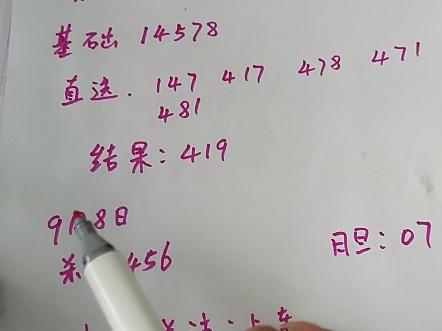 基础 14578
直选. 147 417 478 471
481
结果: 419
9月8日
胆: 07
杀 456